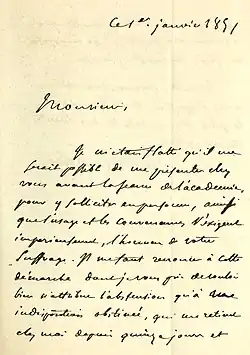 Ce 1er janvier 1851
Monsieur,
Je m'étais flatté qu'il me
serait possible de me présenter chez
vous avant la séance de l'académie,
pour y solliciter en personne, ainsi
que l'usage et les convenances l'exigent
impérieusement, l'honneur de votre
suffrage. Il me faut renoncer à cette
démarche dont je vous prie de vouloir
bien n'attribuer l'abstention qu'à une
indisposition obstinée, qui me retient
chez moi depuis quinze jours et